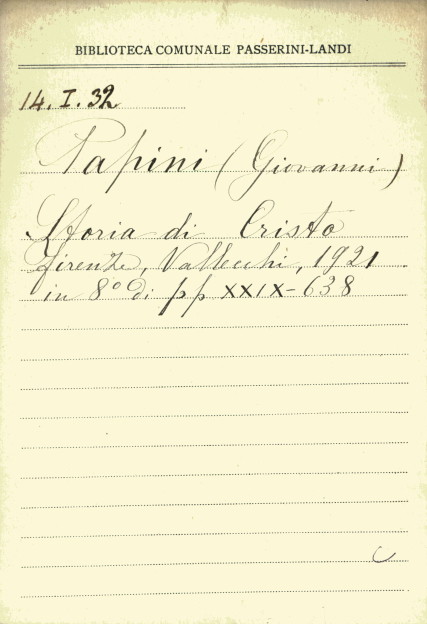 BIBLIOTECA COMUNALE PASSERINI-LANDI
14. I. 32
Papini (Giovanni)
Storia di Cristo
Firenze, Vallecchi, 1921
in 8° di pp XXIX-638